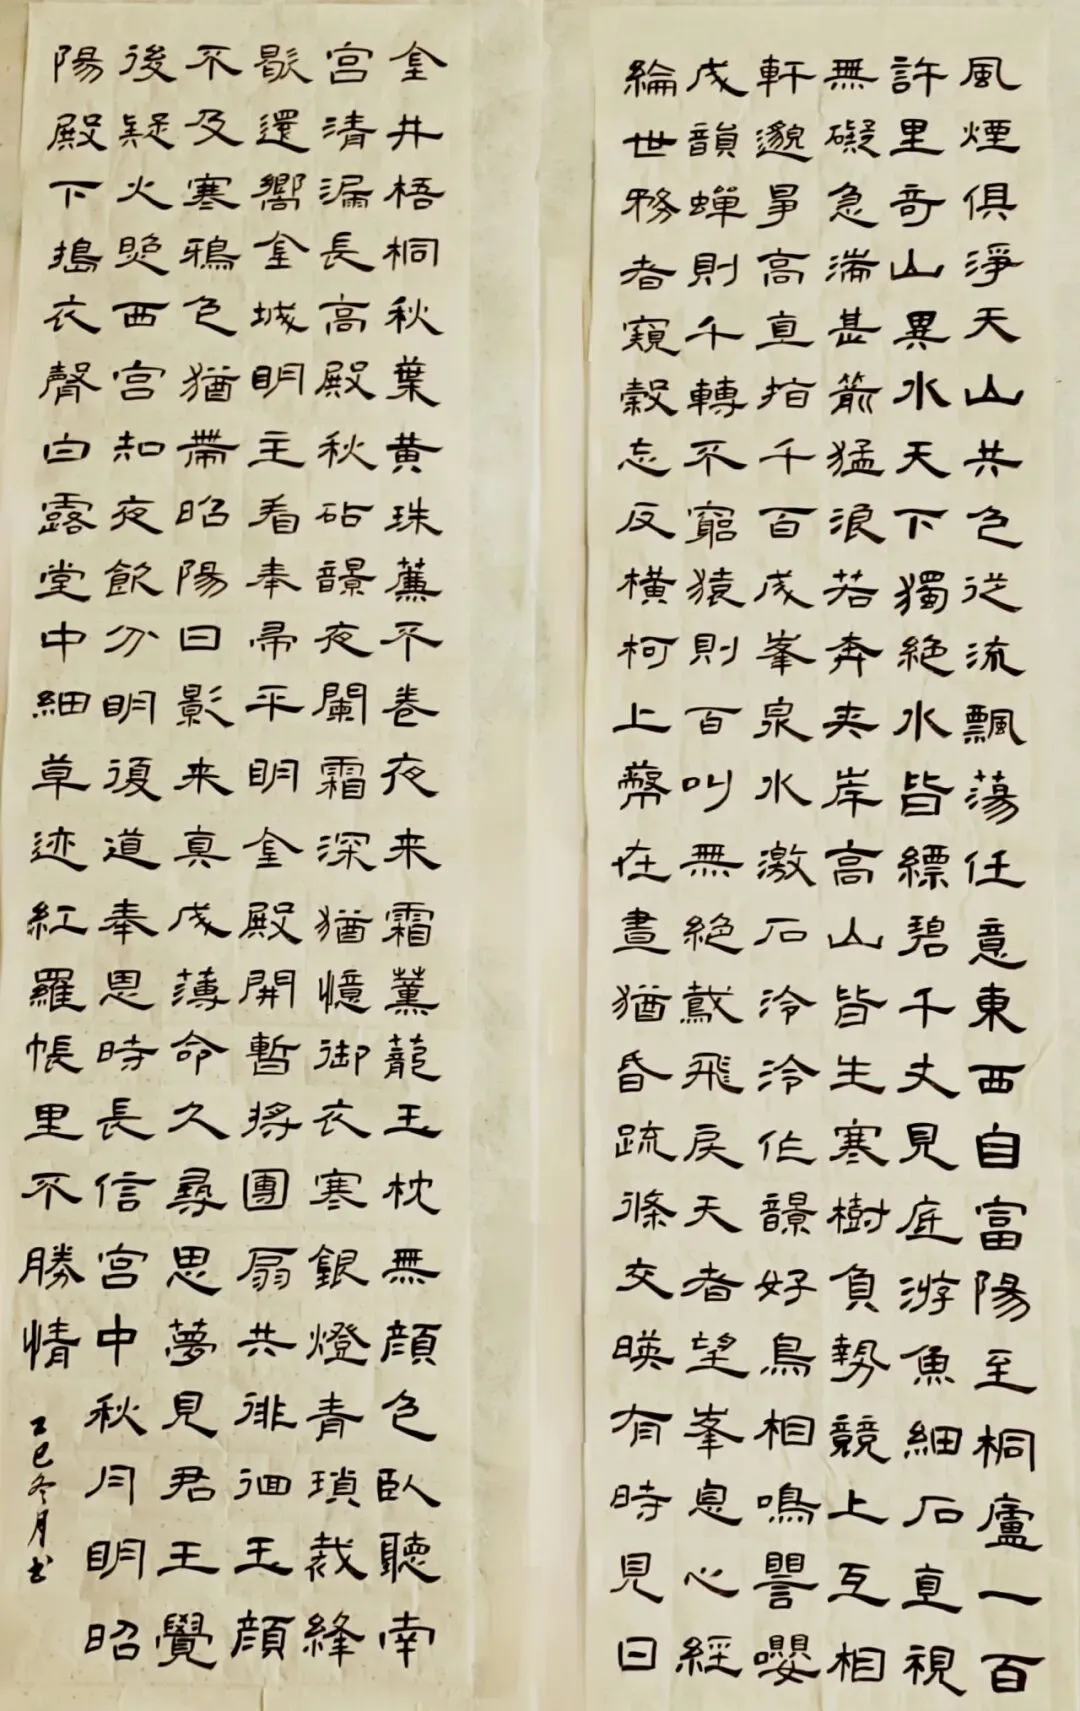 風煙俱淨天山共色從流飄蕩任意東西自富陽至桐廬一百
許里奇山異水天下獨絕水皆縹碧千丈見底游魚細石直視
無礙急湍甚箭猛浪若奔夾岸高山皆生寒樹負勢競上互相
軒邈爭高直指千百成峯泉水激石泠泠作韻好鳥相鳴譻嚶
成韻蟬則千轉不窮猿則百叫無絕鳶飛戾天者望峯息心經
綸世務者窺穀忘反橫柯上蔽在晝猶昏疏條交暎有時見日
金井梧桐秋葉黃珠薕不卷夜来霜薰蘢玉枕無顏色臥聽南
宮清漏長高殿秋砧韻夜闌霜深猶憶御衣寒銀燈青瑣裁縫
歇還嚮金城明主看奉帚平明金殿開暫將團扇共徘徊玉顏
不及寒鴉色猶帶昭陽日影来真成薄命久尋思夢見君王覺
後疑火照西宮知夜飲分明復道奉恩時長信宮中秋月明昭
陽殿下搗衣聲白露堂中細草迹紅羅帳里不勝情
乙巳冬月书